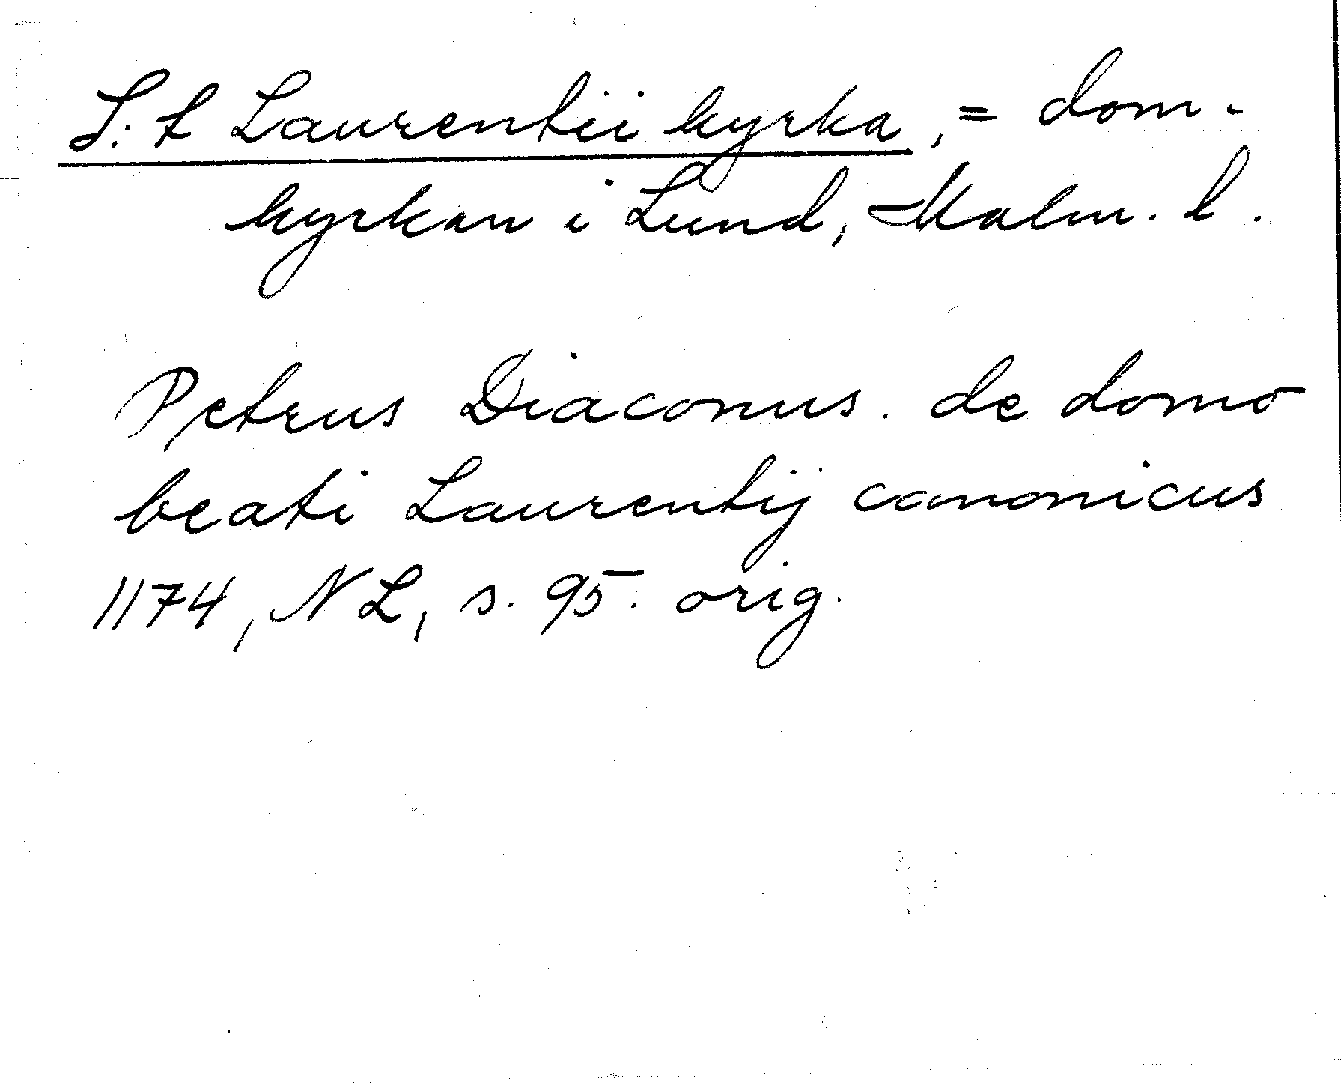 S:t Laurentii kyrka, = dom-
kyrkan i Lund, Malm. l.
Petrus Diaconus. de domo
beati Laurentij canonicus
1174, NL, s. 95. orig.